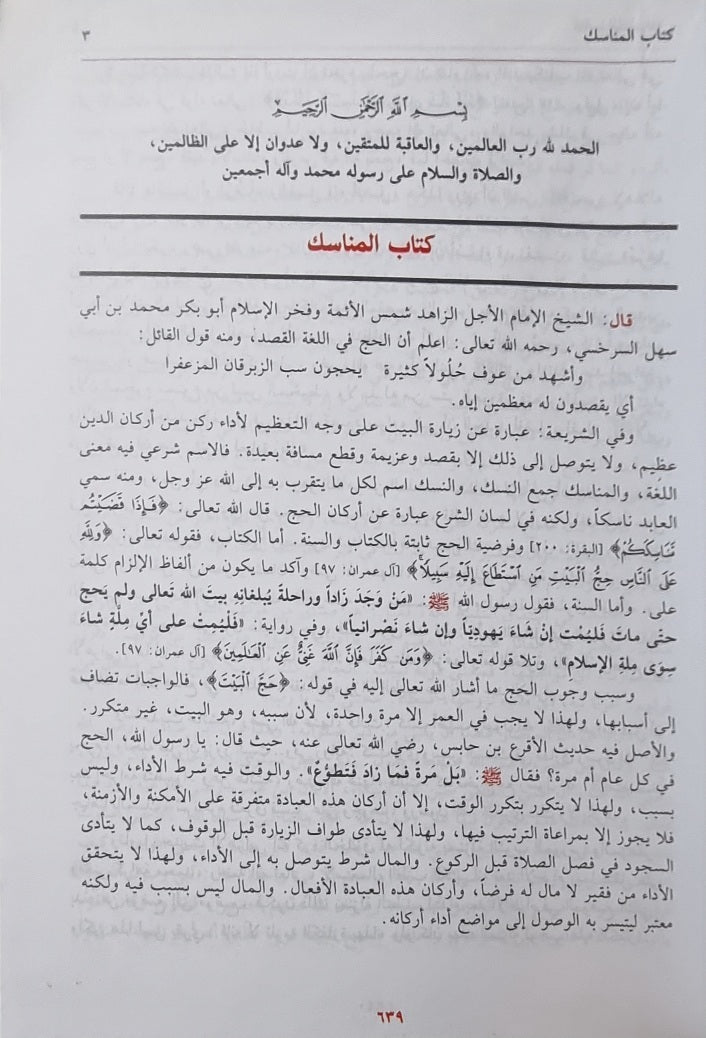 كتاب المناسك ٣
بسم الله الرحمن الرحيم
الحمد لله رب العالمين، والعاقبة للمتقين، ولا عدوان إلا على الظالمين،
والصلاة والسلام على رسوله محمد وآله أجمعين
كتاب المناسك
قال: الشيخ الإمام الأجل الزاهد شمس الأئمة وفخر الإسلام أبو بكر محمد بن أبي
سهل السرخسي، رحمه الله تعالى: اعلم أن الحج في اللغة القصد، ومنه قول القائل:
وأشهد من عوف حُلُولاً كثيرة يحجون سب الزبرقان المزعفرا
أي يقصدون له معظمين إياه.
وفي الشريعة: عبارة عن زيارة البيت على وجه التعظيم لأداء ركن من أركان الدين
عظيم، ولا يتوصل إلى ذلك إلا بقصد وعزيمة وقطع مسافة بعيدة. فالاسم شرعي فيه معنى
اللغة، والمناسك جمع النسك، والنسك اسم لكل ما يتقرب به إلى الله عز وجل، ومنه سمي
العابد ناسكاً، ولكنه في لسان الشرع عبارة عن أركان الحج. قال الله تعالى: ﴿فَإِذَا قَضَيْتُم
مَّنَاسِكَكُمْ﴾ [البقرة: ٢٠٠] وفرضية الحج ثابتة بالكتاب والسنة. أما الكتاب، فقوله تعالى: ﴿وَلِلَّهِ
عَلَى ٱلنَّاسِ حِجُّ ٱلْبَيْتِ مَنِ ٱسْتَطَاعَ إِلَيْهِ سَبِيلًا﴾ [آل عمران: ٩٧] وآكد ما يكون من ألفاظ الإلزام كلمة
على. وأما السنة، فقول رسول الله ﷺ: «مَنْ وَجَدَ زَاداً وراحلةً يُبلغانِهِ بيتَ الله تَعالى ولم يَحج
حتى ماتَ فَليُمت إنْ شَاءَ يَهوديّاً وإن شاءَ نَصْرانياً»، وفي رواية: «فَليُمِتْ على أيِّ مِلَّةٍ شاءَ
سِوَى مِلةِ الإسلامِ»، وتلا قوله تعالى: ﴿وَمَن كَفَرَ فَإِنَّ ٱللَّهَ غَنِيٌّ عَنِ ٱلْعَالَمِينَ﴾ [آل عمران: ٩٧].
وسبب وجوب الحج ما أشار الله تعالى إليه في قوله: ﴿حَجَّ ٱلْبَيْتَ﴾، فالواجبات تضاف
إلى أسبابها، ولهذا لا يجب في العمر إلا مرة واحدة، لأن سببه، وهو البيت، غير متكرر.
والأصل فيه حديث الأقرع بن حابس، رضي الله تعالى عنه، حيث قال: يا رسول الله، الحج
في كل عام أم مرة؟ فقال ﷺ: «بَلْ مَرةً فمَا زادَ فَتَطوُّعٌ». والوقت فيه شرط الأداء، وليس
بسبب، ولهذا لا يتكرر بتكرر الوقت، إلا أن أركان هذه العبادة متفرقة على الأمكنة والأزمنة،
فلا يجوز إلا بمراعاة الترتيب فيها، ولهذا لا يتأدى طواف الزيارة قبل الوقوف، كما لا يتأدى
السجود في فصل الصلاة قبل الركوع. والمال شرط يتوصل به إلى الأداء، ولهذا لا يتحقق
الأداء من فقير لا مال له فرضاً، وأركان هذه العبادة الأفعال. والمال ليس بسبب فيه ولكنه
معتبر ليتيسر به الوصول إلى مواضع أداء أركانه.
٦٣٩